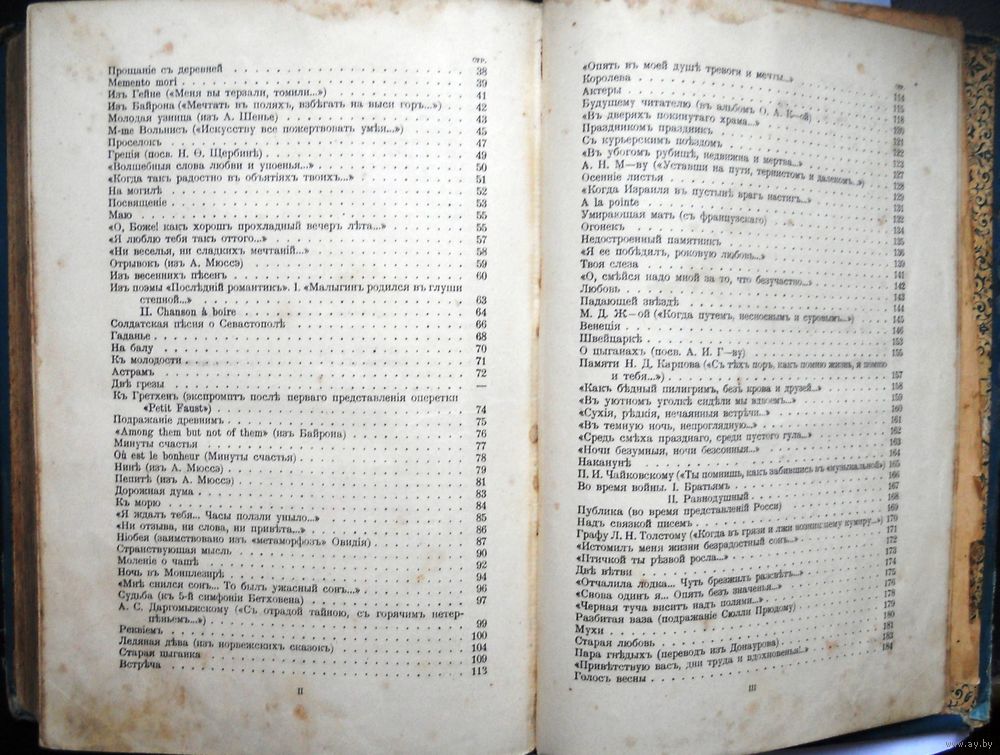 стр.
Прощаніе съ деревней 38
Memento mori 39
Изъ Гейне («Меня вы терзали, томили...») 41
Изъ Байрона («Мечтать въ поляхъ, взбѣгать на выси горъ...») 42
Молодая узница (изъ А. Шенье) 43
М-me Вольнисъ («Искусству все пожертвовать умѣя...») 45
Проселокъ 47
Греція (посв. Н. Ѳ. Щербинѣ) 49
«Волшебныя слова любви и упоенья..» 50
«Когда такъ радостно въ объятіяхъ твоихъ...» 51
На могилѣ 52
Посвященіе 53
Маю 55
«О, Боже! какъ хорошъ прохладный вечеръ лѣта...» 55
«Я люблю тебя такъ оттого...» 57
«Ни веселья, ни сладкихъ мечтаній...» 58
Отрывокъ (изъ А. Мюссэ) 59
Изъ весеннихъ пѣсенъ 60
Изъ поэмы «Послѣдній романтикъ». I. «Малыгинъ родился въ глуши
степной...» 63
II. Chanson à boire 64
Солдатская пѣсня о Севастополѣ 66
Гаданье 68
На балу 70
Къ молодости 71
Астрамъ 72
Двѣ грезы —
Къ Гретхенъ (экспромптъ послѣ перваго представленія оперетки
«Petit Faust») 74
Подражаніе древнимъ 75
«Among them but not of them» (изъ Байрона) 76
Минуты счастья 77
Où est le bonheur (Минуты счастья) 78
Нинѣ (изъ А. Мюссэ) 79
Пепитѣ (изъ А. Мюссэ) 81
Дорожная дума 83
Къ морю 84
«Я ждалъ тебя... Часы ползли уныло...» 85
«Ни отзыва, ни слова, ни привѣта...» 86
Ніобея (заимствовано изъ «метаморфозъ» Овидія) 87
Странствующая мысль 90
Моленіе о чашѣ 92
Ночь въ Монплезирѣ 94
«Мнѣ снился сонъ... То былъ ужасный сонъ...» 96
Судьба (къ 5-й симфоніи Бетховена) 97
А. С. Даргомыжскому («Съ отрадой тайною, съ горячимъ нетер-
пѣньемъ...») 99
Реквіемъ 100
Ледяная дѣва (изъ норвежскихъ сказокъ) 104
Старая цыганка 109
Встрѣча 113
II
«Опять въ моей душѣ тревоги и мечты...»
Королева 114
Актеры 115
Будущему читателю (въ альбомъ О. А. К—ой) 118
«Въ дверяхъ покинутаго храма...» 120
Праздникомъ праздникъ 121
Съ курьерскимъ поѣздомъ 122
«Въ убогомъ рубищѣ, недвижна и мертва...» 123
А. Н. М—ву («Уставши на пути, тернистомъ и далекомъ..») 127
Осенніе листья 128
«Когда Израиля въ пустынѣ врагъ настигъ...» 129
A la pointe 131
Умирающая мать (съ французскаго) 132
Огонекъ 134
Недостроенный памятникъ 135
«Я ее побѣдилъ, роковую любовь...» 136
Твоя слеза 139
«О, смѣйся надо мной за то, что безучастно...» 141
Любовь 142
Падающей звѣздѣ 143
М. Д. Ж—ой («Когда путемъ, несноснымъ и суровымъ...») 144
Венеція 145
Швейцаркѣ 146
О цыганахъ (посв. А. И. Г—ву) 153
Памяти Н. Д. Карпова («Съ тѣхъ поръ, какъ помню жизнь, я помню
и тебя...») 157
«Какъ бѣдный пилигримъ, безъ крова и друзей...» 158
«Въ уютномъ уголкѣ сидѣли мы вдвоемъ...» 159
«Сухія, рѣдкія, нечаянныя встрѣчи...» 160
«Въ темную ночь, непроглядную...» 161
«Средь смѣха празднаго, среди пустого гула...» 162
«Ночи безумныя, ночи безсонныя...» 163
Наканунѣ 164
П. И. Чайковскому («Ты помнишь, какъ забившись въ «музыкальной») 165
Во время войны. I. Братьямъ 166
II. Равнодушный 167
Публика (во время представленій Росси) 168
Надъ связкой писемъ 169
Графу Л. Н. Толстому («Когда въ грязи и лжи возникшему кумиру...») 170
«Истомилъ меня жизни безрадостный сонъ...» 171
«Птичкой ты рѣзвой росла...» 172
Двѣ вѣтви 173
«Отчалила лодка... Чуть брезжилъ разсвѣтъ...» 174
«Снова одинъ я... Опять безъ значенья...» 175
«Черная туча виситъ надъ полями...» 176
Разбитая ваза (подражаніе Сюлли Прюдому) 178
Мухи 179
Старая любовь 180
Пара гнѣдыхъ (переводъ изъ Донаурова) 181
«Привѣтствую васъ, дни труда и вдохновенья!..» 183
Голосъ весны 184
III
www.ay.by